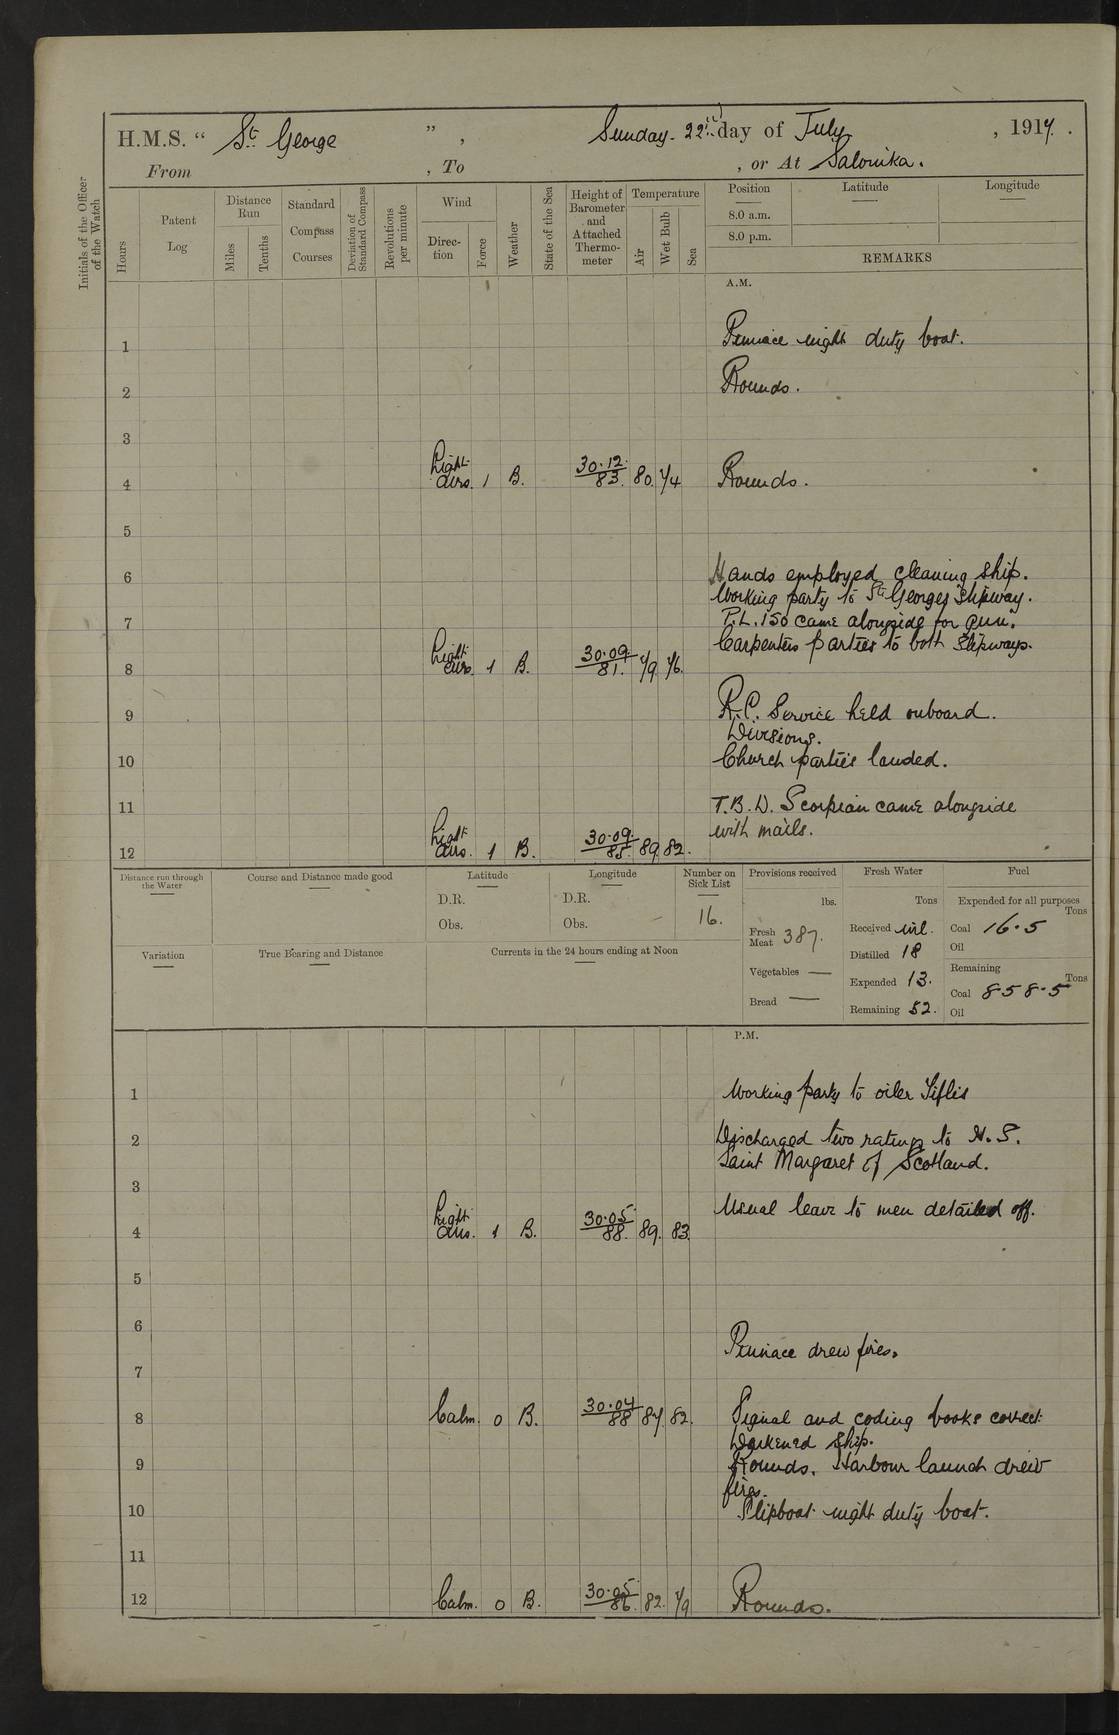 H.M.S. " St George ", Sunday 22nd day of July, 1917.
From , To , or At Salonika.
Initials of the Officer of the Watch
Hours
Patent Log
Distance Run
Miles
Tenths
Standard Compass Courses
Deviation of Standard Compass
Revolutions per minute
Wind
Direction
Force
Weather
State of the Sea
Height of Barometer and Attached Thermometer
Temperature
Air
Wet Bulb
Sea
Position
8.0 a.m.
8.0 p.m.
Latitude
Longitude
REMARKS
A.M.
1 Pinnace night duty boat.
2 Rounds.
3
4 Light airs. 1 B. 30.12 83. 80. 74 Rounds.
5
6 Hands employed cleaning ship.
Working party to St Georges Slipway.
7 P.L. 150 came alongside for gun.
Carpenters parties to both Slipways.
8 Light airs. 1 B. 30.09 81. 79 76.
9 R.C. Service held onboard.
Divisions.
10 Church parties landed.
11 T.B.D. Scorpion came alongside
with mails.
12 Light airs. 1 B. 30.09 85. 89 82.
Distance run through the Water
Course and Distance made good
Latitude
D.R.
Obs.
Longitude
D.R.
Obs.
Number on Sick List
16.
Provisions received
lbs.
Fresh Meat 387.
Vegetables —
Bread —
Fresh Water
Tons
Received nil.
Distilled 18
Expended 13.
Remaining 52.
Fuel
Expended for all purposes
Tons
Coal 16.5
Oil
Remaining
Tons
Coal 858.5
Oil
Variation
True Bearing and Distance
Currents in the 24 hours ending at Noon
P.M.
1 Working party to oiler Tiflis
2 Discharged two ratings to H.S.
Saint Margaret of Scotland.
3
Usual leave to men detailed off.
4 Light airs. 1 B. 30.05 88. 89. 83.
5
6
Pinnace drew fires.
7
8 Calm. 0 B. 30.04 88 87 82. Signal and coding books correct.
Darkened ship.
9 Rounds. Harbour launch drew
fires.
10 Slipboat night duty boat.
11
12 Calm. 0 B. 30.05 86. 82. 79 Rounds.